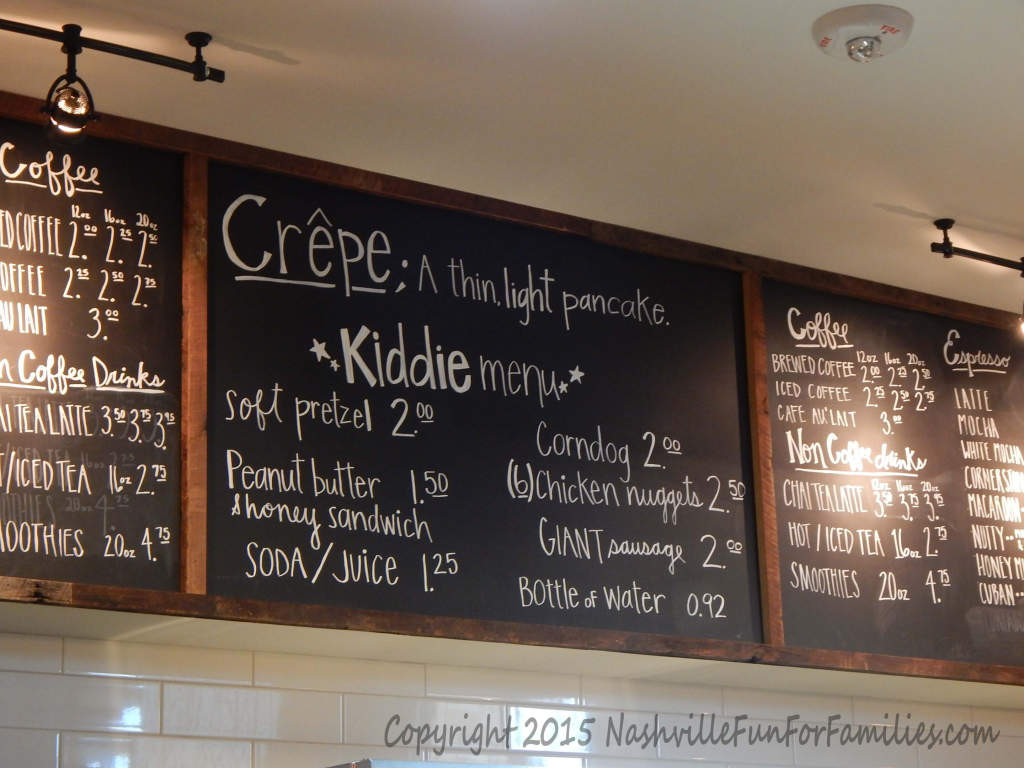 Coffee
12oz 16oz 20oz
ED COFFEE 2.00 2.25 2.50
OFFEE 2.25 2.50 2.75
AU LAIT 3.00
n Coffee Drinks
AI TEA LATTE 3.50 3.75 3.95
T/ICED TEA 16oz 2.75
MOOTHIES 20oz 4.75
Crêpe; A thin, light pancake.
Kiddie menu
Soft pretzel 2.00
Peanut butter 1.50
& honey sandwich
SODA/JUICE 1.25
Corndog 2.00
(6) Chicken nuggets 2.50
GIANT sausage 2.00
Bottle of Water 0.92
Coffee
12oz 16oz 20oz
BREWED COFFEE 2.00 2.25 2.50
ICED COFFEE 2.25 2.50 2.75
CAFE AU LAIT 3.00
Non Coffee drinks
12oz 16oz 20oz
CHAI TEA LATTE 3.50 3.75 3.95
HOT/ICED TEA 16oz 2.75
SMOOTHIES 20oz 4.75
Espresso
LATTE
MOCHA
WHITE MOCHA
MACAROON
NUTTY
HONEY M
CUBAN
Copyright 2015 NashvilleFunForFamilies.com